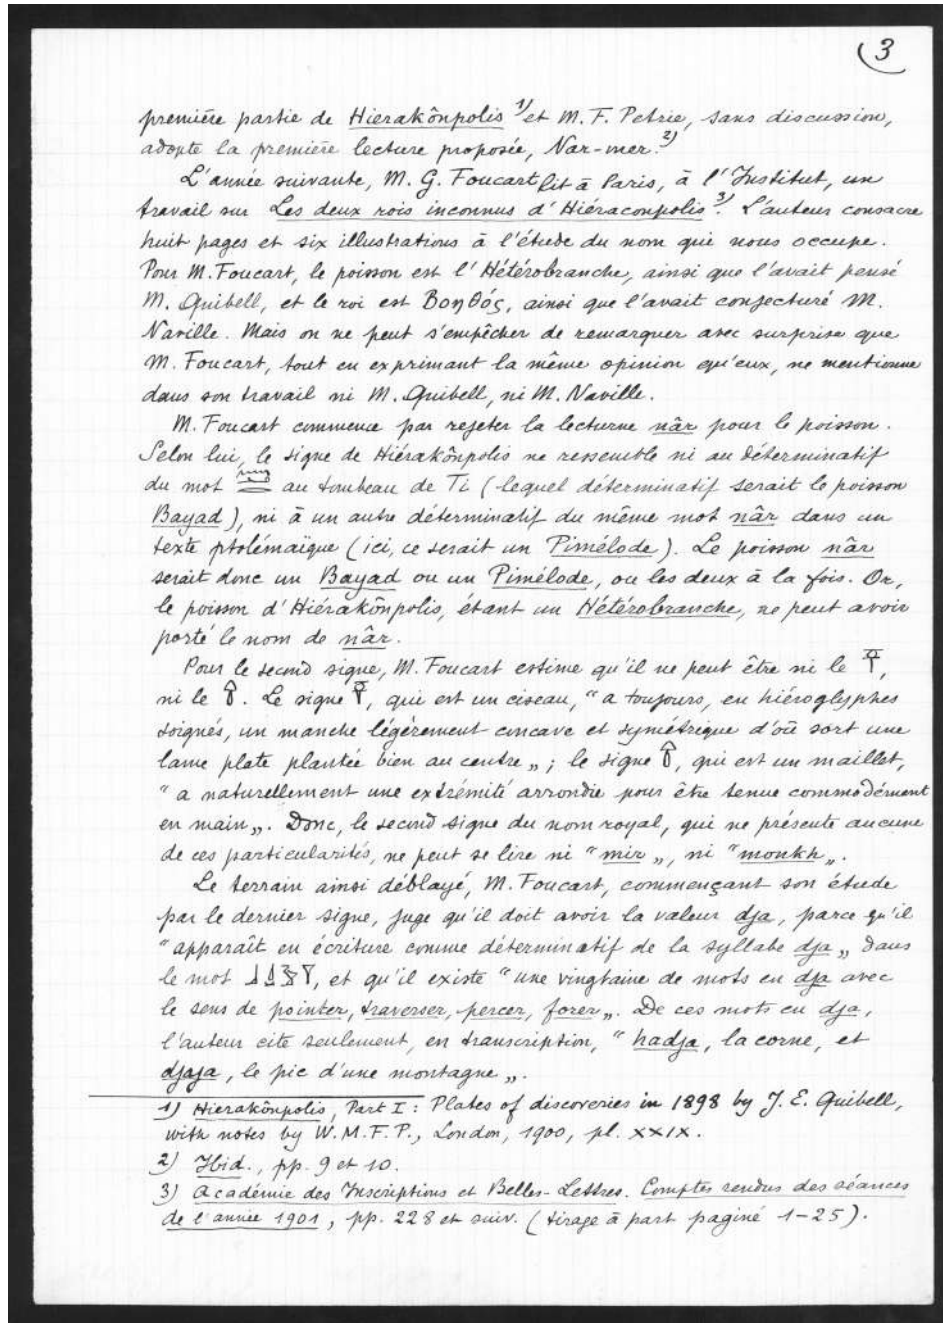 3
première partie de Hierakônpolis 1) et M. F. Petrie, sans discussion,
adopte la première lecture proposée, Nar-mer. 2)
L'année suivante, M. G. Foucart lit à Paris, à l'Institut, un
travail sur Les deux rois inconnus d'Hiéraconpolis 3). L'auteur consacre
huit pages et six illustrations à l'étude du nom qui nous occupe.
Pour M. Foucart, le poisson est l'Hétérobranche, ainsi que l'avait pensé
M. Quibell, et le roi est Βοηθός, ainsi que l'avait conjecturé M.
Naville. Mais on ne peut s'empêcher de remarquer avec surprise que
M. Foucart, tout en exprimant la même opinion qu'eux, ne mentionne
dans son travail ni M. Quibell, ni M. Naville.
M. Foucart commence par rejeter la lecture nâr pour le poisson.
Selon lui, le signe de Hiérakônpolis ne ressemble ni au déterminatif
du mot au tombeau de Ti (lequel déterminatif serait le poisson
Bayad), ni à un autre déterminatif du même mot nâr dans un
texte ptolémaïque (ici, ce serait un Pimélode). Le poisson nâr
serait donc un Bayad ou un Pimélode, ou les deux à la fois. Or,
le poisson d'Hiérakônpolis, étant un Hétérobranche, ne peut avoir
porté le nom de nâr.
Pour le second signe, M. Foucart estime qu'il ne peut être ni le ,
ni le . Le signe , qui est un ciseau, "a toujours, en hiéroglyphes
soignés, un manche légèrement concave et symétrique d'où sort une
lame plate plantée bien au centre„; le signe , qui est un maillet,
"a naturellement une extrémité arrondie pour être tenue commodément
en main„. Donc, le second signe du nom royal, qui ne présente aucune
de ces particularités, ne peut se lire ni "mir„, ni "monkh„.
Le terrain ainsi déblayé, M. Foucart, commençant son étude
par le dernier signe, juge qu'il doit avoir la valeur dja, parce qu'il
"apparaît en écriture comme déterminatif de la syllabe dja„ dans
le mot , et qu'il existe "une vingtaine de mots en dja avec
le sens de pointer, traverser, percer, forer„. De ces mots en dja,
l'auteur cite seulement, en transcription, "hadja, la corne, et
djaja, le pic d'une montagne„.
1) Hierakônpolis, Part I: Plates of discoveries in 1898 by J. E. Quibell,
with notes by W.M.F.P., London, 1900, pl. XXIX.
2) Ibid., pp. 9 et 10.
3) Académie des Inscriptions et Belles-Lettres. Comptes rendus des séances
de l'année 1901, pp. 228 et suiv. (tirage à part paginé 1-25).